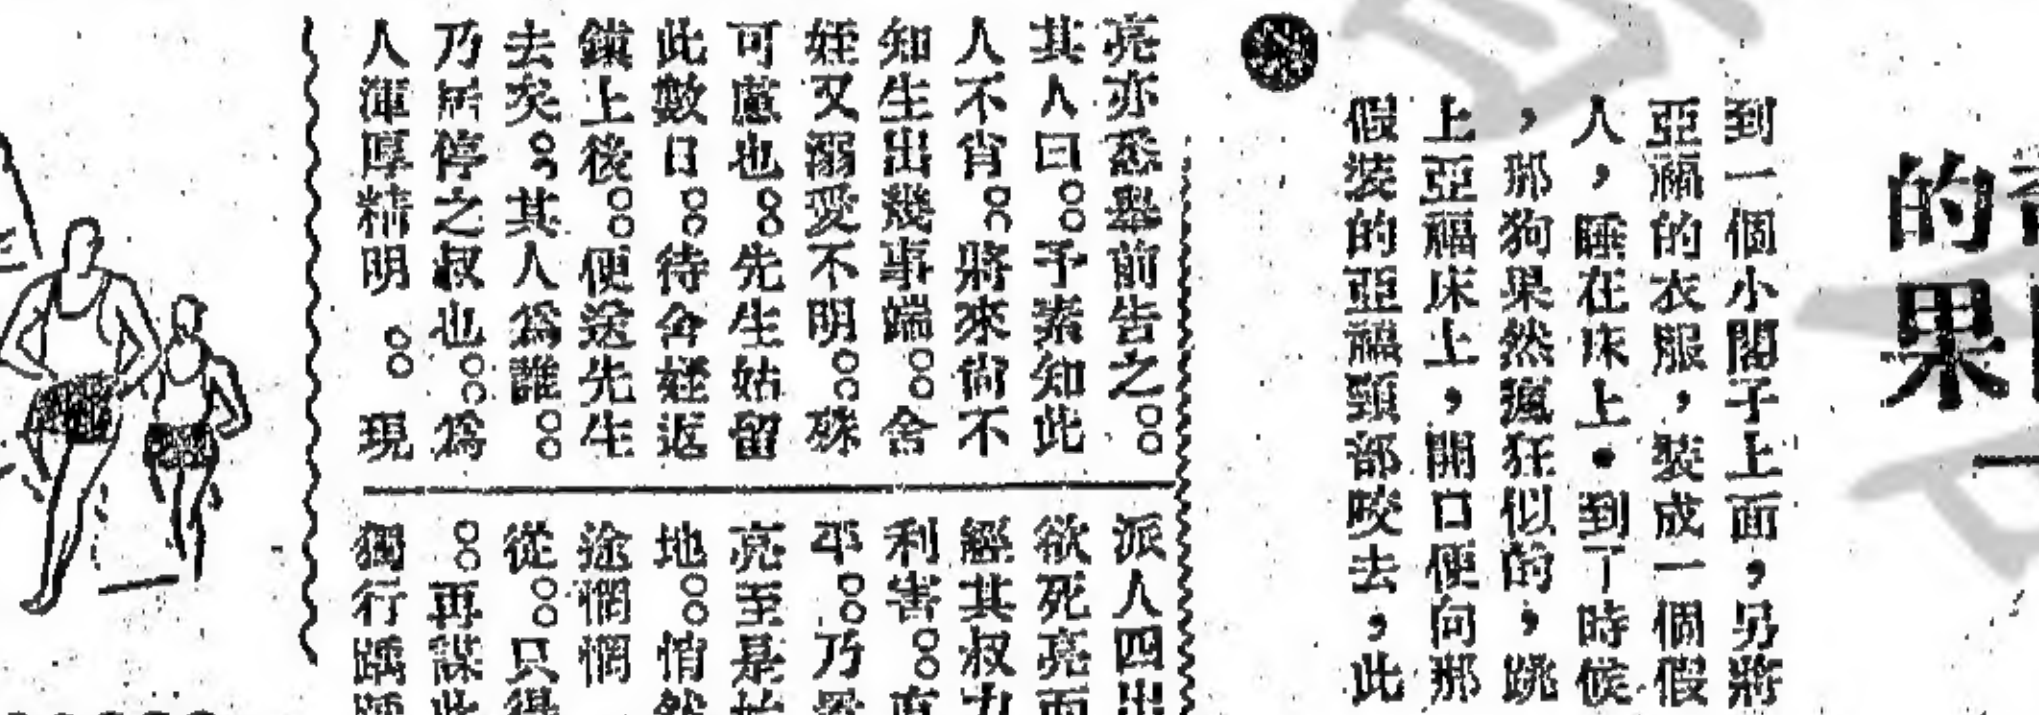 的果
到一個小閣子上面，另將
亞福的衣服，裝成一個假
人，睡在床上．到了時候
，那狗果然瘋狂似的，跳
上亞福床上，開口便向那
假裝的亞福頸部咬去，此
亮亦悉舉前告之。
其人曰。予素知此
人不肖。將來尙不
知生出幾事端。舍
姪又溺愛不明。殊
可慮也。先生姑留
此數日。待舍姪返
鎮上後。便送先生
去矣。其人爲誰。
乃居停之叔也。爲
人渾厚精明。現
派人四出
欲死亮而
經其叔力
利害。
平。乃
亮至是始
地。悄然
途惘惘
從。只得
。再謀
獨行踽踽